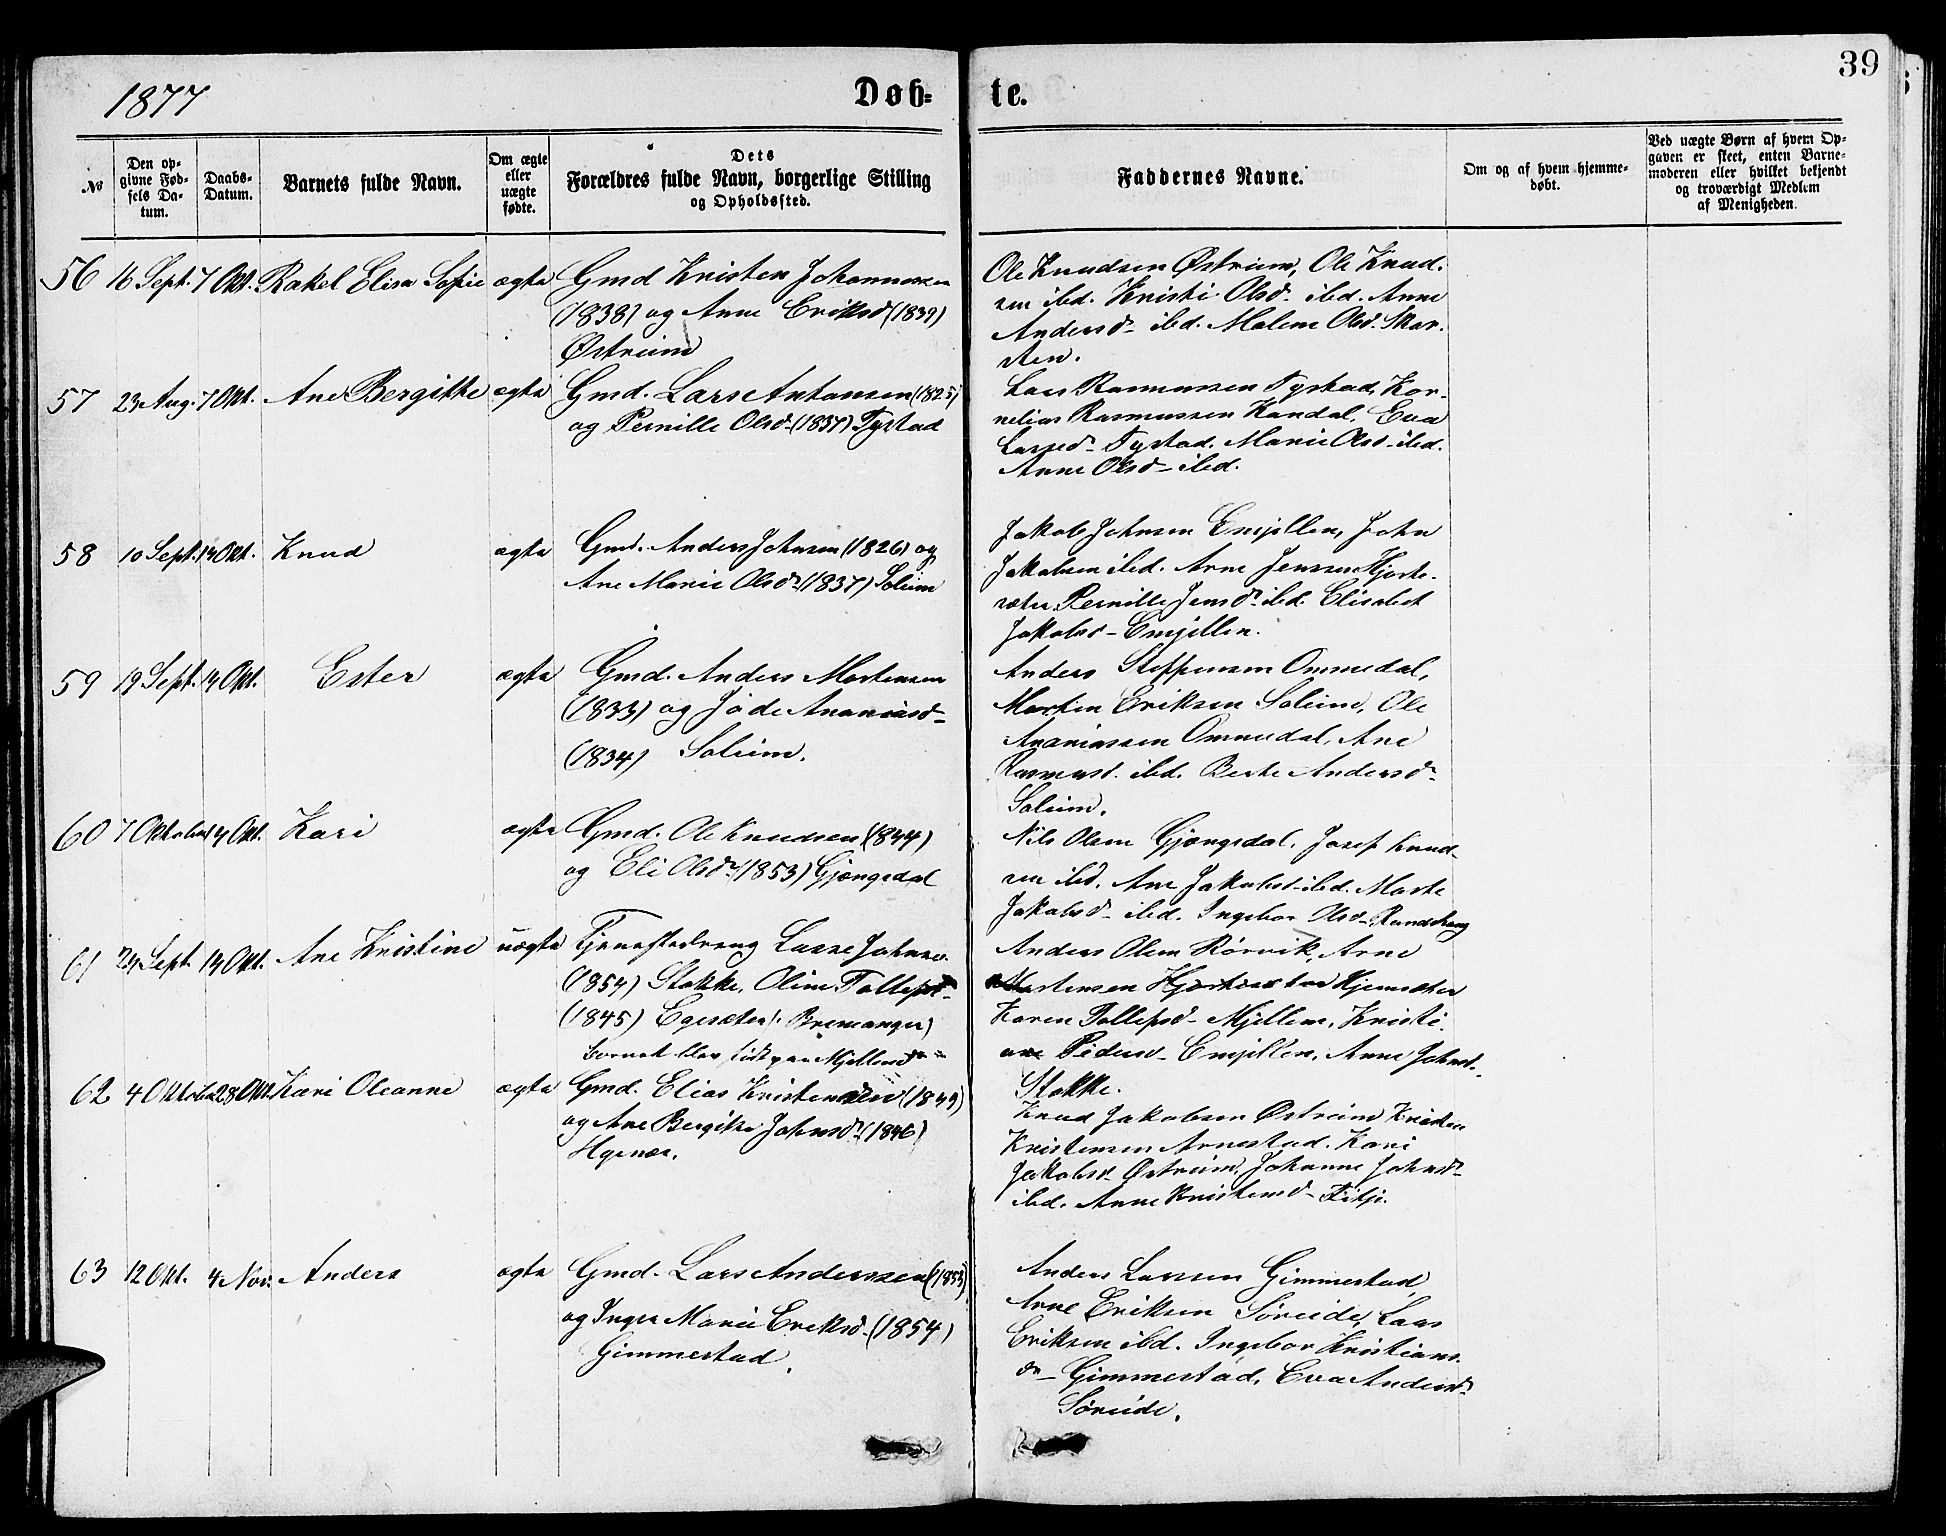 39
1877
Døb=
te.
No
Den op-
givne Fød-
sels Da-
tum.
Daabs-
Datum.
Barnets fulde Navn.
Om ægte
eller
uægte
fødte.
Dets
Forældres fulde Navn, borgerlige Stilling
og Opholdssted.
Faddernes Navne.
Om og af hvem hjemme-
døbt.
Ved uægte Børn af hvem Op-
gaven er skeet, enten Barne-
moderen eller hvilket bekjendt
og troværdigt Medlem
af Menigheden.
56 16 Sept. 7 Okt. Rakel Elisa Sofie ægte Gmd Kristen Johannessen
(1838) og Anne Eriksd (1839)
Østreim
Ole Knudsen Østreim, Ole Knud-
sen ibd. Kristi Olsd- ibd. Anne
Andersd- ibd. Malene Olsd. Skar-
sten.
57 23 Aug. 7 Okt. Ane Bergitte ægte Gmd. Lars Antonsen (1825)
og Pernille Olsd- (1837) Tystad
Lars Rasmussen Tystad, Kor-
nelius Rasmussen Kandal, Eva
Larsd- Tystad. Marie Olsd- ibd.
Anne Olsd- ibd.
58 10 Sept. 14 Okt. Knud ægte Gmd. Anders Johnsen (1826) og
Ane Marie Olsdr (1837) Soleim
Jakob Johnsen Emjellen, John
Jakobsen ibd. Arne Jenssen Hjorte-
sæter, Pernille Jensdr ibd. Elisabet
Jakobsd- Emjellen.
59 19 Sept. 14 Okt. Ester ægte Gmd. Anders Mortensen
(1833) og Jøde Ananiasd-
(1834) Soleim.
Anders Steffensen Ommedal,
Morten Eriksen Soleim, Ole
Ananiassen Ommedal, Ane
Rasmusd. ibd. Berte Andersdr
Soleim.
60 7 Oktober 14 Okt. Kari ægte Gmd. Ole Knudsen (1844)
og Eli Olsdr (1853) Gjengedal
Nils Olsen Gjengedal, Josef Knud-
sen ibd. Ane Jakobsd- ibd. Marte
Jakobsd- ibd. Ingebor Olsd-
61 24 Sept. 14 Okt. Ane Kristine uægte Tjenestedreng Lasse Johnsen
(1854) Stokke, Oline Tollefsd-
(1845) (: Bremanger)
barnet blev født paa Mjellem
Anders Olsen Rørvik, Arne
Mortensen Hjemsæter
Karen Tollefsd- Mjellem, Kristi
Pedersd- Emjellen, Anne Johnsd-
Stokke.
62 4 Oktober 28 Okt. Kari Oleanne ægte Gmd. Elias Kristensen (1849)
og Ane Bergitte Johnsdr (1846)
Hgenæs.
Knud Jakobsen Østreim Kristen
Kristensen Arnestad. Kari
Jakobsd- Østreim, Johanne Johnsdr
ibd. Anne Kristensd- Fitje.
63 12 Okt. 4 Nov. Anders ægte Gmd. Lars Anderssen (1853)
og Inger Marie Eriksd- (1854)
Gimmestad.
Anders Larsen Gimmestad
Arne Eriksen Søreide, Lars
Eriksen ibd. Ingebor Kristians-
dr- Gimmestad, Eva Andersdr
Søreide.